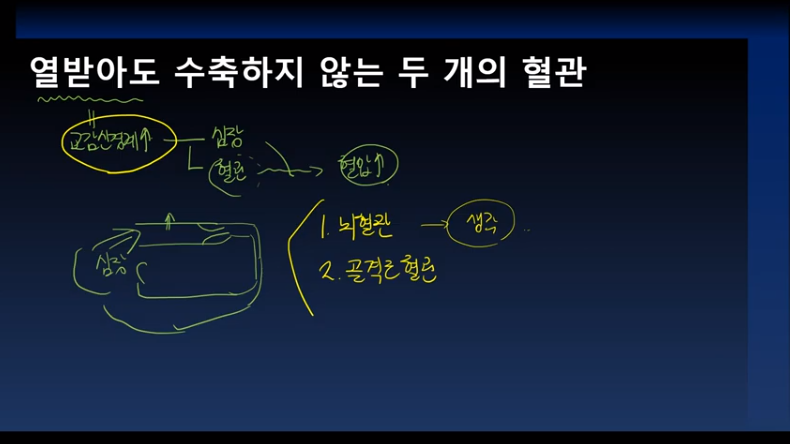 열받아도 수축하지 않는 두 개의 혈관
교감신경계↑
심장
혈관
혈압↑
심장
1. 뇌혈관 → 생각
2. 골격근혈관